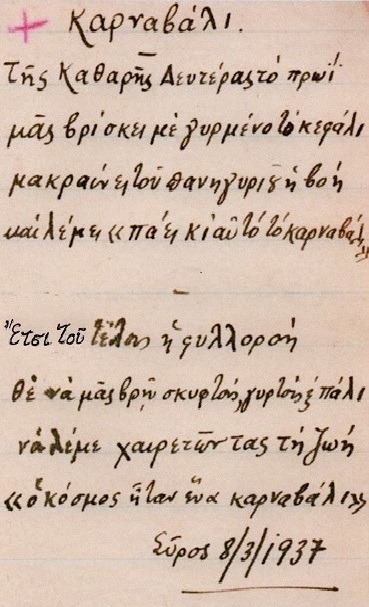 Καρναβάλι.
Τῆς Καθαρῆς Δευτέρας τό πρωΐ
μᾶς βρίσκει μέ γυρμένο τό κεφάλι
μακραίνει τοῦ πανηγυριοῦ ἡ βοή
καί λέμε «πάει κι αὐτό τό καρναβάλι»
Ἔτσι τοῦ τέλους ἡ φυλλοροή
θέ νά μᾶς βρῇ σκυφτούς, γυρτούς πάλι
νά λέμε χαιρετῶντας τή ζωή
«ὁ κόσμος ἦταν ἕνα καρναβάλι»
Σῦρος 8/3/1937